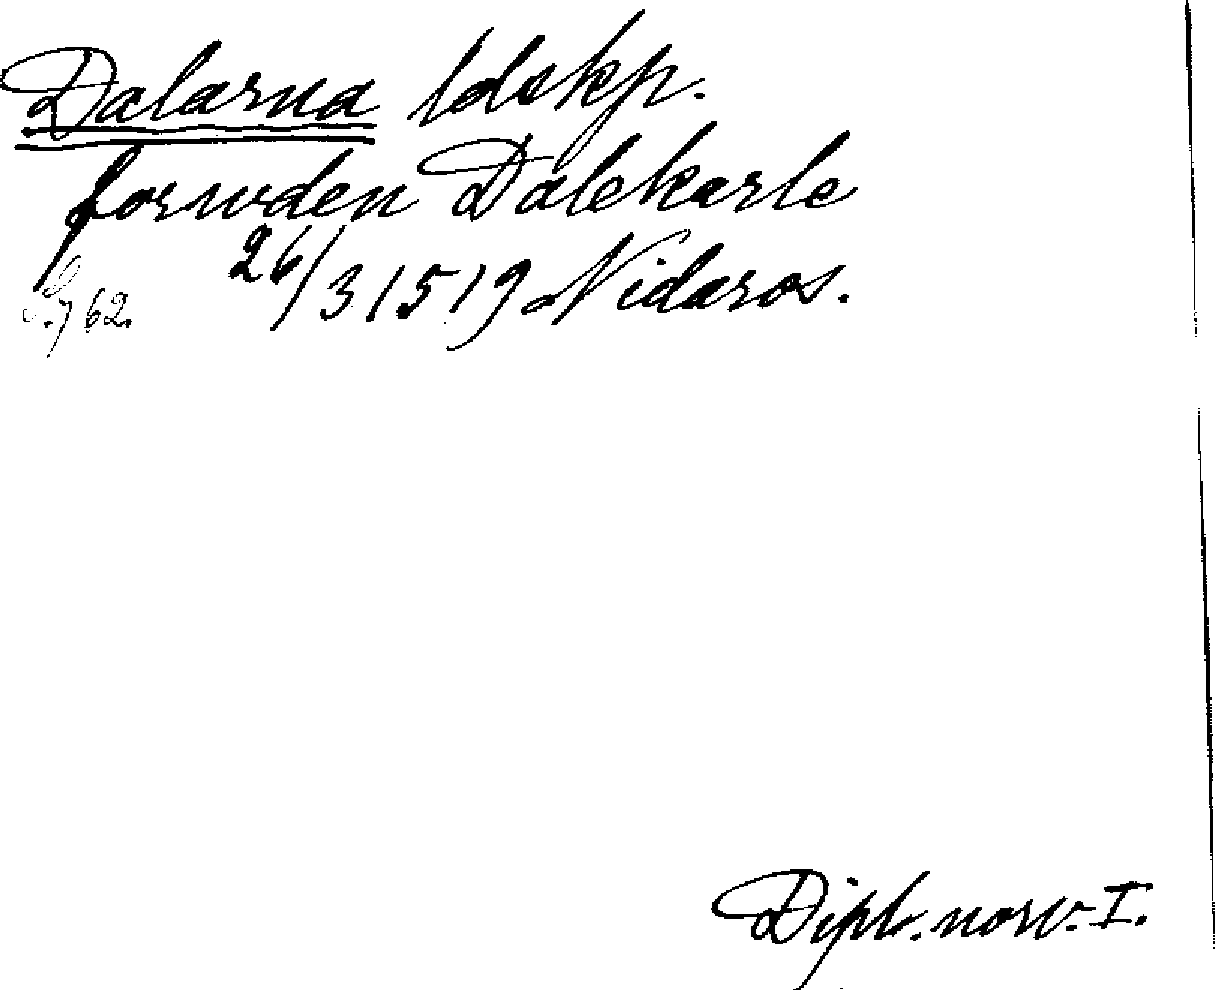 Dalarna ldskp.
forwden Dalekarle
26/3 1519 Nidaros.
S. 762.
Dipl. norv. I.